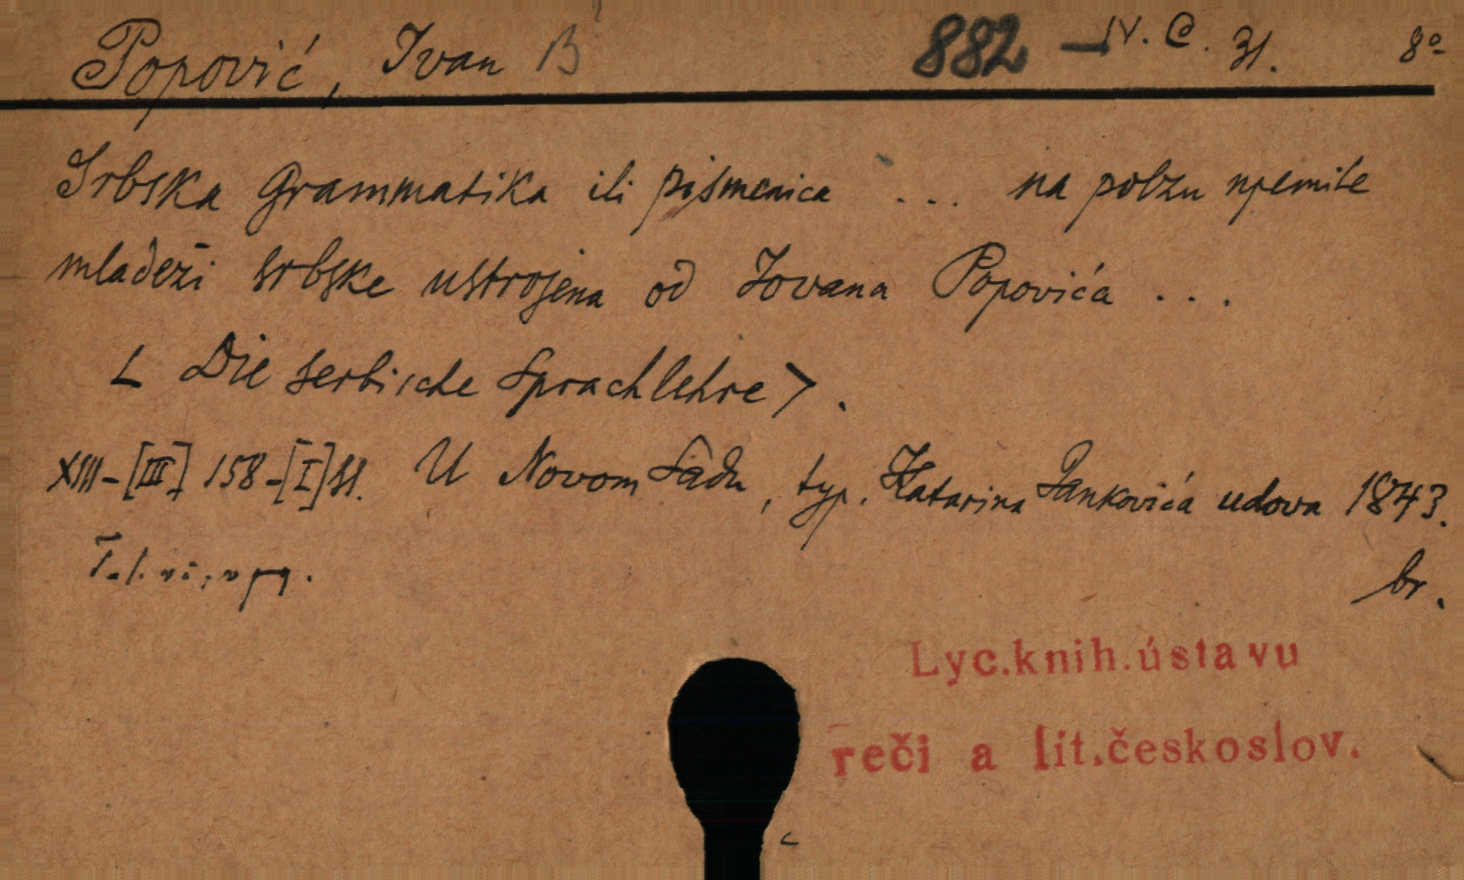 Popović, Ivan B 882 – IV. C. 31. 8º
Srbska Grammatika ili pismenica ... na polzu npemile
mladeži srbske ustrojena od Jovana Popovića ...
< Die serbische Sprachlehre > .
XIII-[III] 158-[I] ss. U Novom Sadu, typ. Katarina Jankovića udova 1843.
br.
Lyc.knih.ústavu
reči a lit.českoslov.